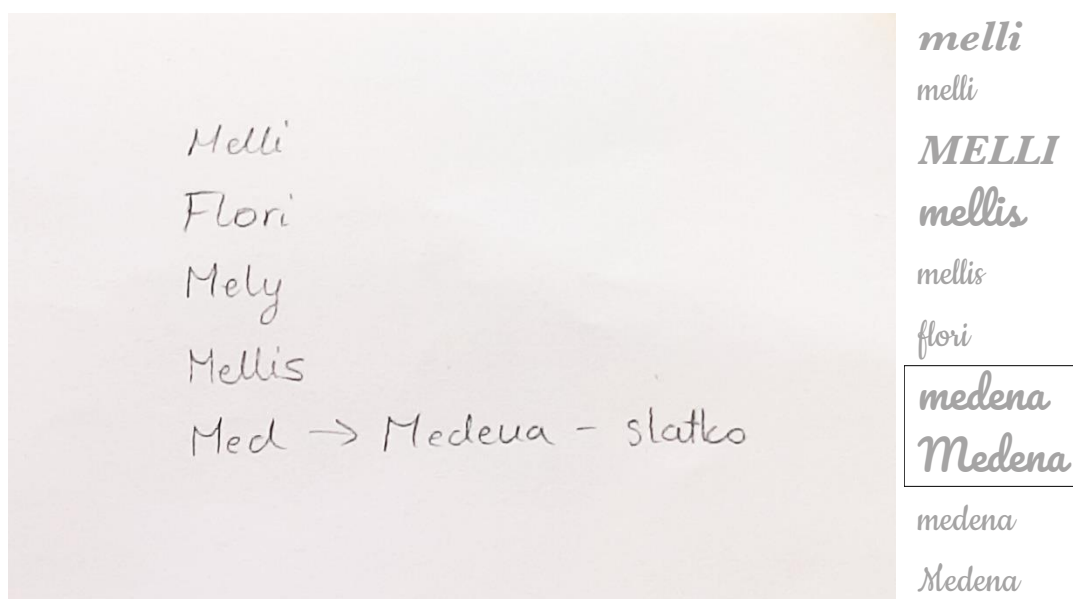 Melli
Flori
Mely
Mellis
Med → Medena - slatko
melli
melli
MELLI
mellis
mellis
flori
medena
Medena
medena
Medena